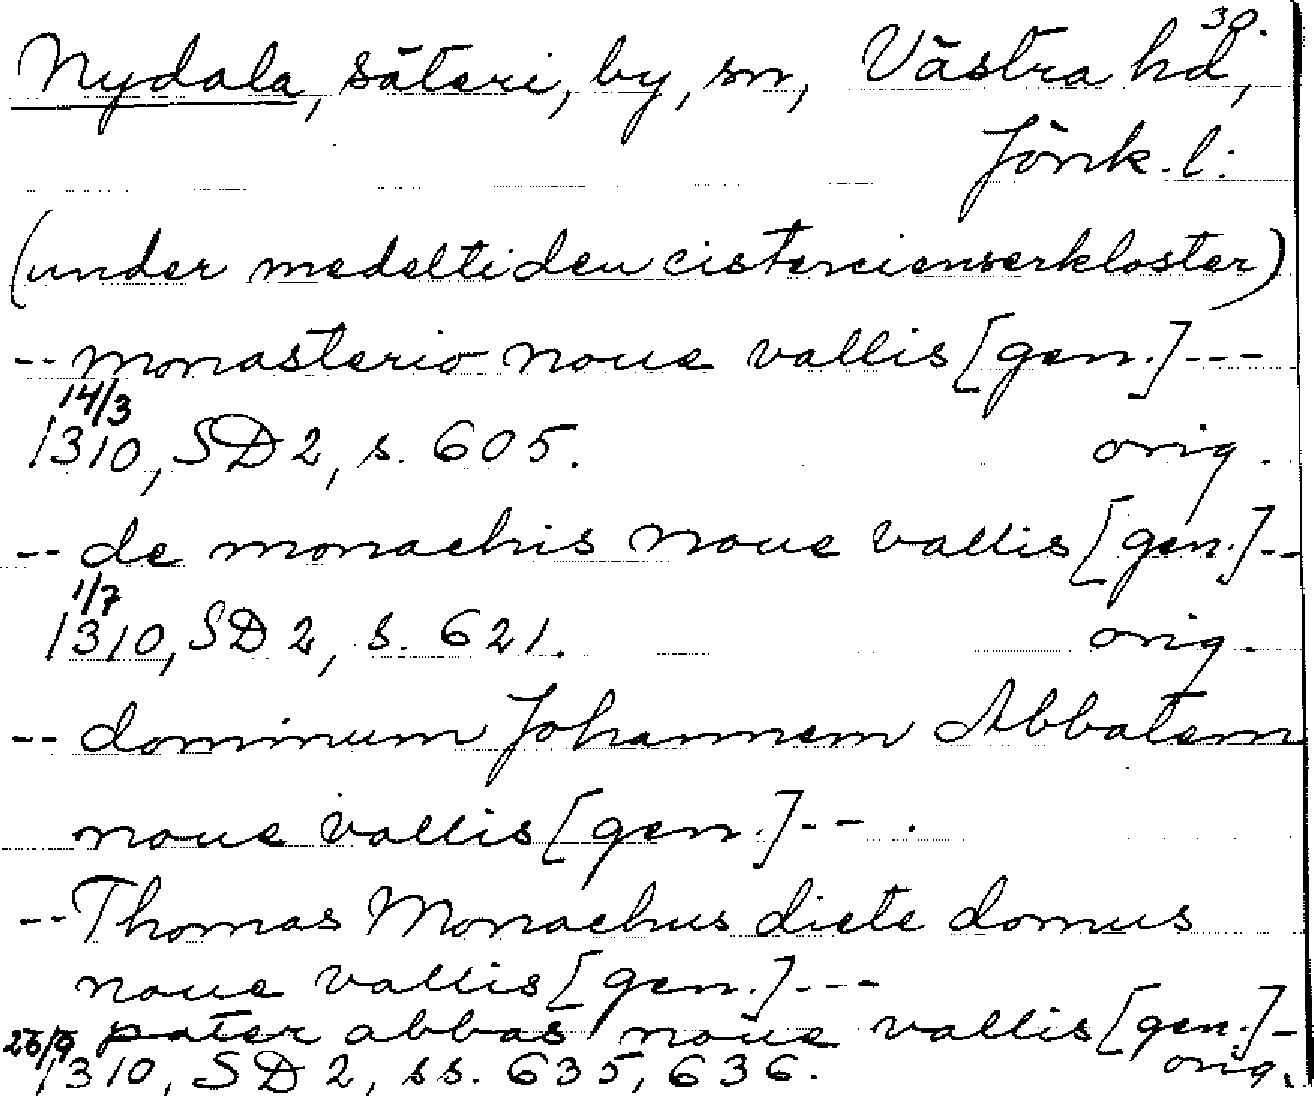 30.
Nydala, säteri, by, sn, Västra hd,
Jönk. l.
(under medeltiden cistercienserkloster)
-- monasterio noue vallis [gen.] ---
14/3
1310, SD 2, s. 605. orig.
-- de monachis noue vallis [gen.] --
1/7
1310, SD 2, s. 621. orig.
-- dominum Johannem Abbatem
noue vallis [gen.] -- .
-- Thomas Monachus dicte domus
noue vallis [gen.] ---
pater abbas noue vallis [gen.] -
26/9 1310, SD 2, ss. 635, 636. orig.